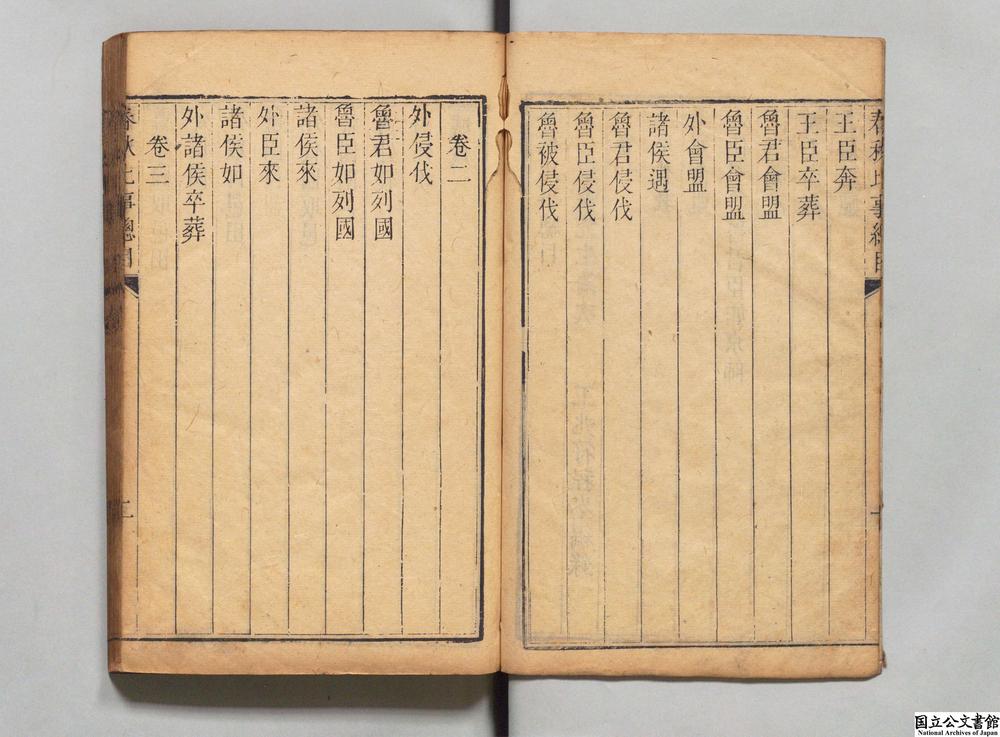 春秋比事總目
王臣奔
王臣卒葬
魯君會盟
魯臣會盟
外會盟
諸侯遇
魯君侵伐
魯臣侵伐
魯被侵伐
卷二
外侵伐
魯君如列國
魯臣如列國
諸侯來
外臣來
諸侯如
外諸侯卒葬
卷三
春秋比事總目
二
国立公文書館
National Archives of Japan